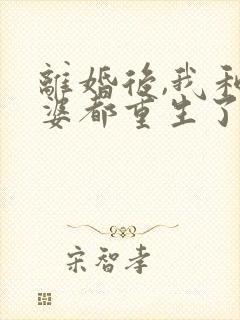 離婚後,我和
婆都重生了
宋智孝